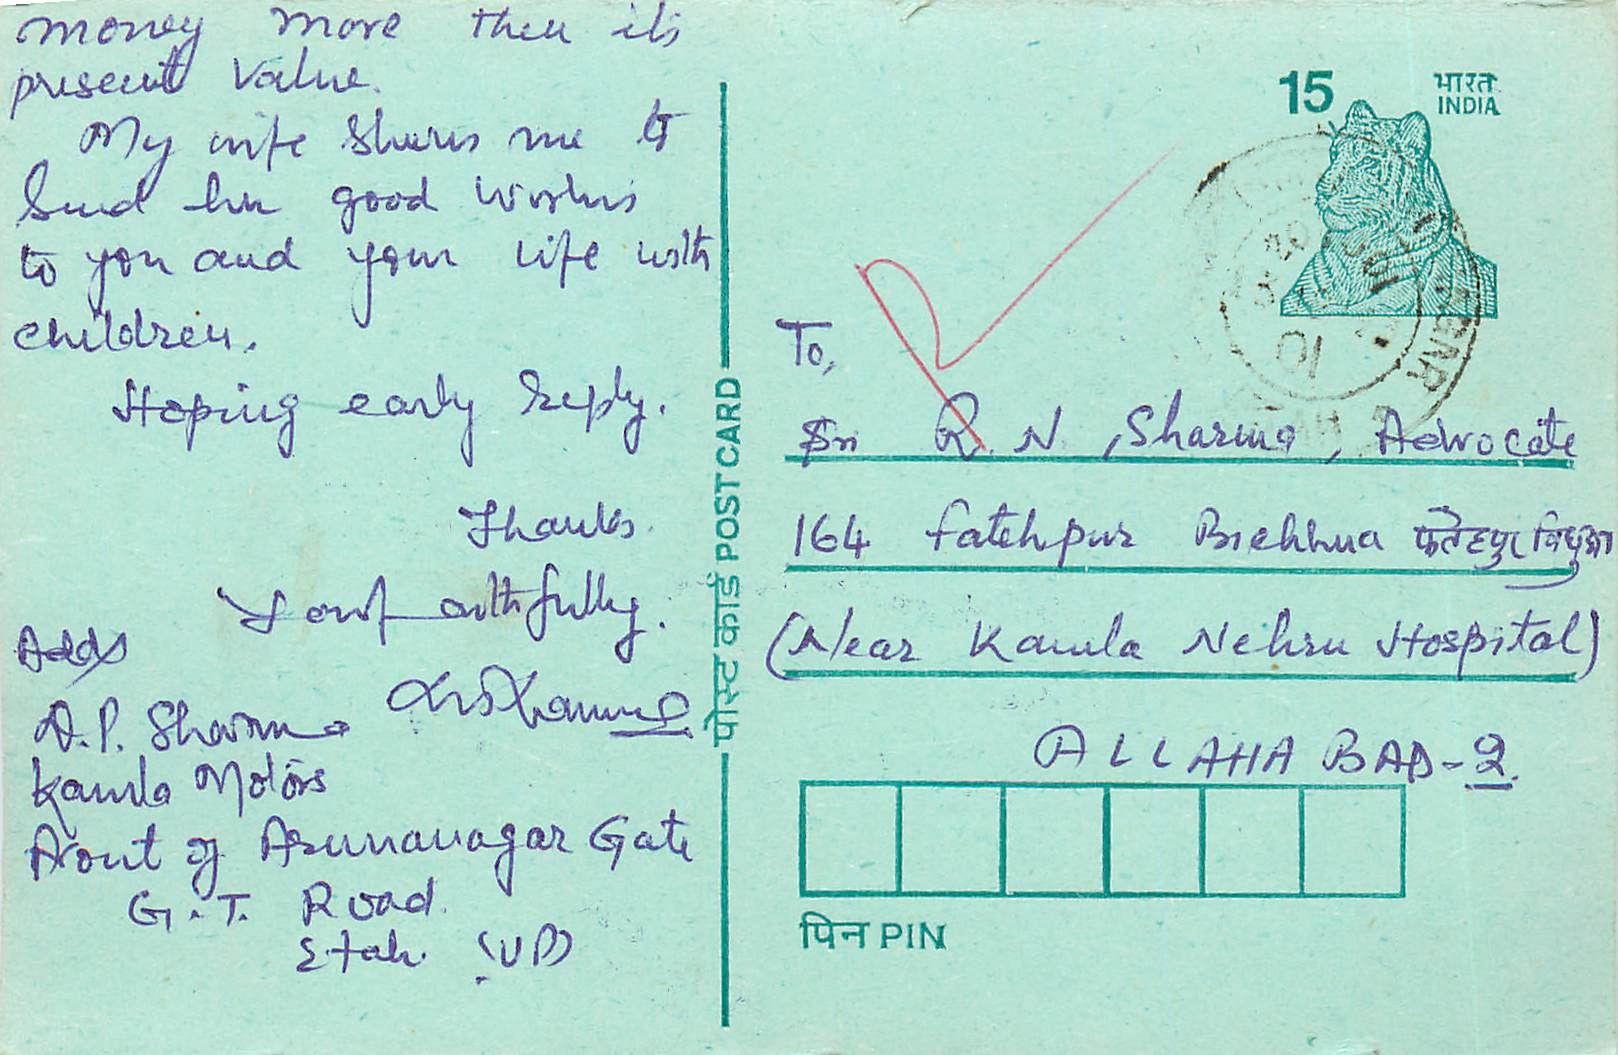 money more then its
present value.
My wife shares me to
send her good wishes
to you and your wife with
children.
Hoping early reply.
Thanks.
Yours faithfully.
Adds
D.P. Sharma
Kamla Motors
Front of Arunanagar Gate
G.T. Road.
Etah. (UP)
पोस्ट कार्ड POST CARD
15 भारत
INDIA
10
To,
Sri R. N. Sharma, Advocate
164 Fatehpur Bichhua फतेहपुर बिछुआ
(Near Kamla Nehru Hospital)
ALLAHABAD-2.
पिन PIN